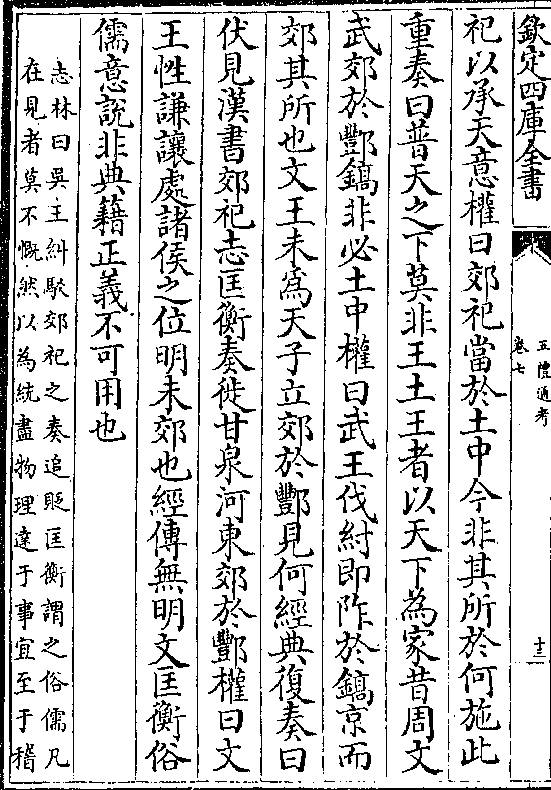 欽定四庫全書
五禮通考
卷七
十三
祀以承天意權曰郊祀當於土中今非其所於何施此
重奏曰普天之下莫非王土王者以天下為家昔周文
武郊於酆鎬非必土中權曰武王伐紂即阼於鎬京而
郊其所也文王未為天子立郊於酆見何經典復奏曰
伏見漢書郊祀志匡衡奏徙甘泉河東郊於酆權曰文
王性謙讓處諸侯之位明未郊也經傳無明文匡衡俗
儒意說非典籍正義不可用也
志林曰吳王糾駁郊祀之奏追貶匡衡謂之俗儒凡
在見者莫不慨然以為統盡物理達于事宜至于稽